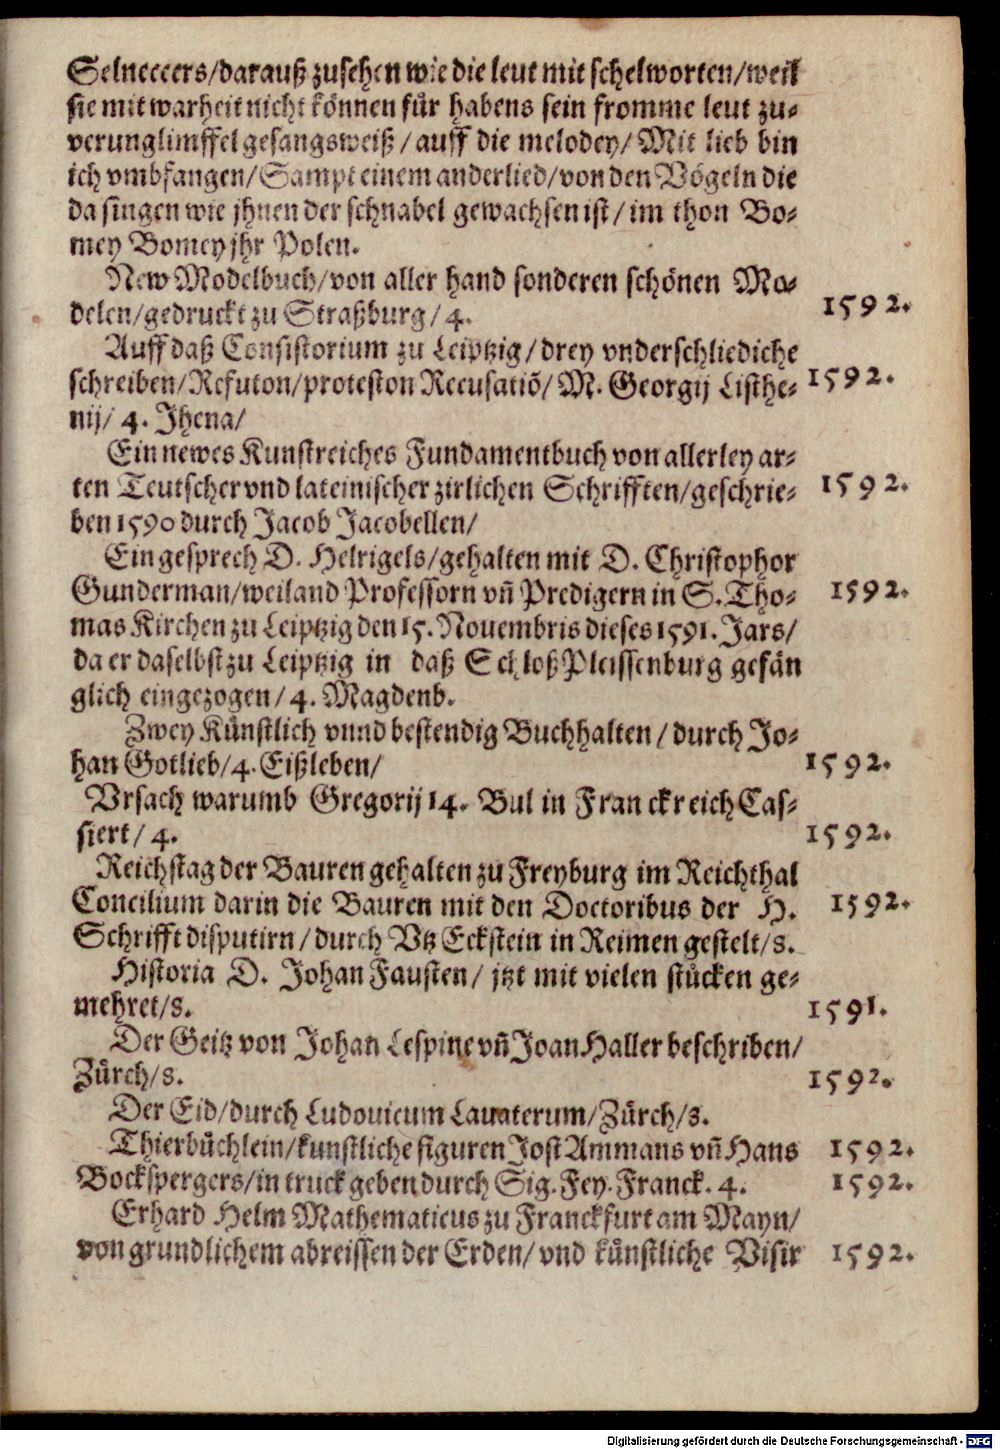 Selneccers/darauß zusehen wie die leut mit schelworten/weil
sie mit warheit nicht können für habens sein fromme leut zu-
verunglimffel gesangsweiß/auff die melodey/Mit lieb bin
ich vmbfangen/Sampt einem anderlied/von den Vögeln die
da singen wie jhnen der schnabel gewachsen ist/im thon Bo-
mey Bomey jhr Polen.
New Modelbuch/von aller hand sonderen schönen Mo-
delen/gedruckt zu Straßburg/4. 1592.
Auff daß Consistorium zu Leiptzig/drey vnderschliediche
schreiben/Refuton/proteston Recusatiõ/M. Georgij Listhe- 1592.
nij/ 4. Jhena/
Ein newes Kunstreiches Fundamentbuch von allerley ar-
ten Teutscher vnd lateinischer zirlichen Schrifften/geschrie- 1592.
ben 1590 durch Jacob Jacobellen/
Ein gesprech D. Helrigels/gehalten mit D. Christophor
Gunderman/weiland Professorn vñ Predigern in S. Tho- 1592.
mas Kirchen zu Leiptzig den 15. Nouembris dieses 1591. Jars/
da er daselbst zu Leiptzig in daß Schloß Pleissenburg gefän
glich eingezogen/4. Magdenb.
Zwey Künstlich vnnd bestendig Buchhalten/durch Jo-
han Gotlieb/4. Eißleben/ 1592.
Vrsach warumb Gregorij 14. Bul in Franckreich Cas-
siert/4. 1592.
Reichstag der Bauren gehalten zu Freyburg im Reichthal
Concilium darin die Bauren mit den Doctoribus der H. 1592.
Schrifft disputirn/durch Vtz Eckstein in Reimen gestelt/8.
Historia D. Johan Fausten/ jtzt mit vielen stücken ge-
mehret/8. 1591.
Der Geitz von Johan Lespine vñ Joan Haller beschriben/
Zürch/8. 1592.
Der Eid/durch Ludouicum Lauaterum/Zürch/8.
Thierbüchlein/kunstliche figuren Jost Ammans vñ Hans 1592.
Bockspergers/in truck geben durch Sig. Fey. Franck. 4. 1592.
Erhard Helm Mathematicus zu Franckfurt am Mayn/
von grundlichem abreissen der Erden/vnd künstliche Visir 1592.
Digitalisierung gefördert durch die Deutsche Forschungsgemeinschaft - DFG